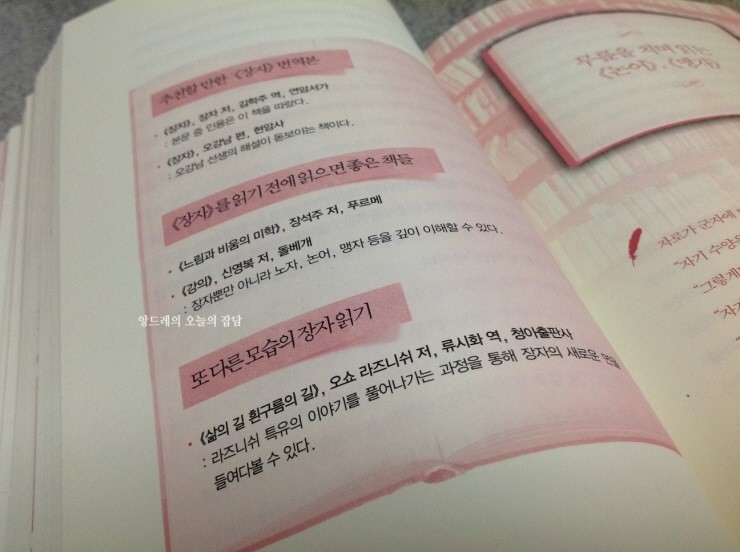 추천할 만한 《장자》 번역본
• 《장자》, 장자 저, 김학주 역, 연암서가
: 본문 중 인용은 이 책을 따랐다.
• 《장자》, 오강남 편, 현암사
: 오강남 선생의 해설이 돋보이는 책이다.
《장자》를 읽기 전에 읽으면 좋은 책들
• 《느림과 비움의 미학》, 장석주 저, 푸르메
• 《강의》, 신영복 저, 돌베개
: 장자뿐만 아니라 노자, 논어, 맹자 등을 깊이 이해할 수 있다.
앙드레의 오늘의 잡담
또 다른 모습의 장자 읽기
• 《삶의 길 흰구름의 길》, 오쇼 라즈니쉬 저, 류시화 역, 청아출판사
: 라즈니쉬 특유의 이야기를 풀어나가는 과정을 통해 장자의 새로운 면을
들여다볼 수 있다.
무릎을 치며 읽는
《논어》, 《맹자》
자로가 군자에
“자기 수양을
“그렇게
“자기